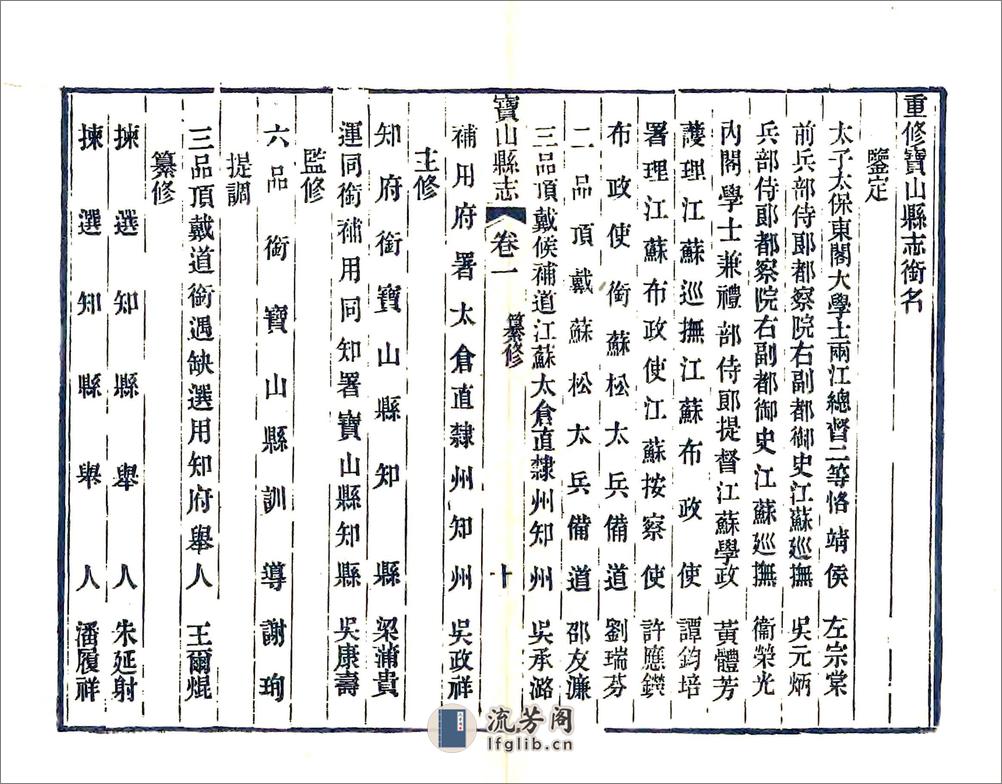 重修寶山縣志銜名
鑒定
太子太保東閣大學士兩江總督二等恪靖侯 左宗棠
前兵部侍郎都察院右副都御史江蘇巡撫 吳元炳
兵部侍郎都察院右副都御史江蘇巡撫 衞榮光
內閣學士兼禮部侍郎提督江蘇學政 黃體芳
護理江蘇巡撫江蘇布政使 譚鈞培
署理江蘇布政使江蘇按察使 許應鑅
布政使銜蘇松太兵備道 劉瑞芬
二品頂戴蘇松太兵備道 邵友濂
三品頂戴候補道江蘇太倉直隸州知州 吳承潞
寶山縣志 卷一 纂修 十
補用府署太倉直隸州知州 吳政祥
主修
知府銜寶山縣知縣 梁蒲貴
運同銜補用同知署寶山縣知縣 吳康壽
監修
六品銜寶山縣訓導 謝珣
提調
三品頂戴道銜遇缺選用知府舉人 王爾焜
纂修
揀選知縣舉人 朱延射
揀選知縣舉人 潘履祥
流芳阁
lfglib.cn